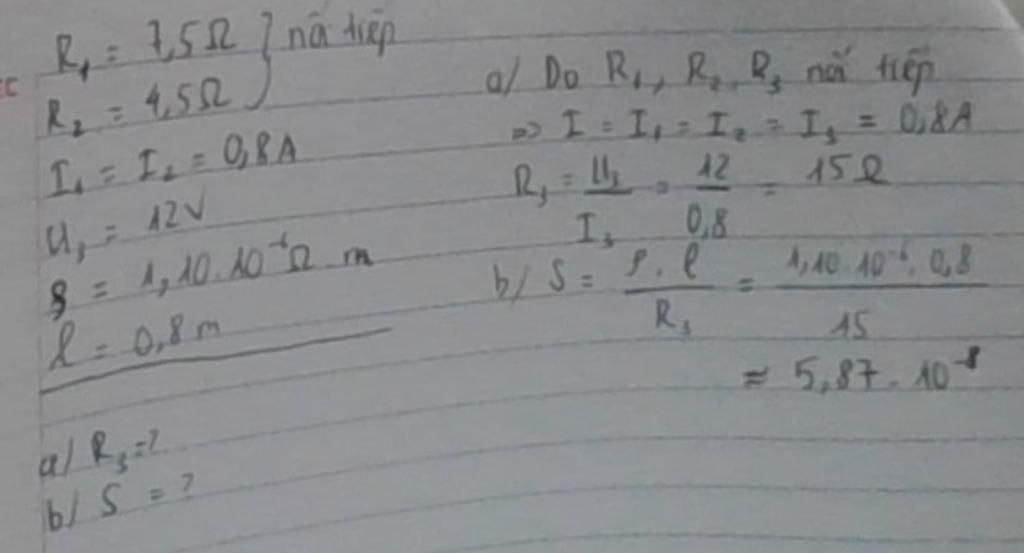 R₁ = 7,5Ω } nối tiếp
R₂ = 4,5Ω
I₁ = I₂ = 0,8A
U₃ = 12V
ρ = 1,10.10⁻⁶Ω m
l = 0,8 m
a/ R₃=?
b/ S = ?
a/ Do R₁, R₂, R₃ nối tiếp
=> I = I₁ = I₂ = I₃ = 0,8A
R₃ = U₃/I₃ = 12/0,8 = 15Ω
b/ S = ρ.l/R₃ = 1,10.10⁻⁶.0,8/15
≈ 5,87.10⁻⁸